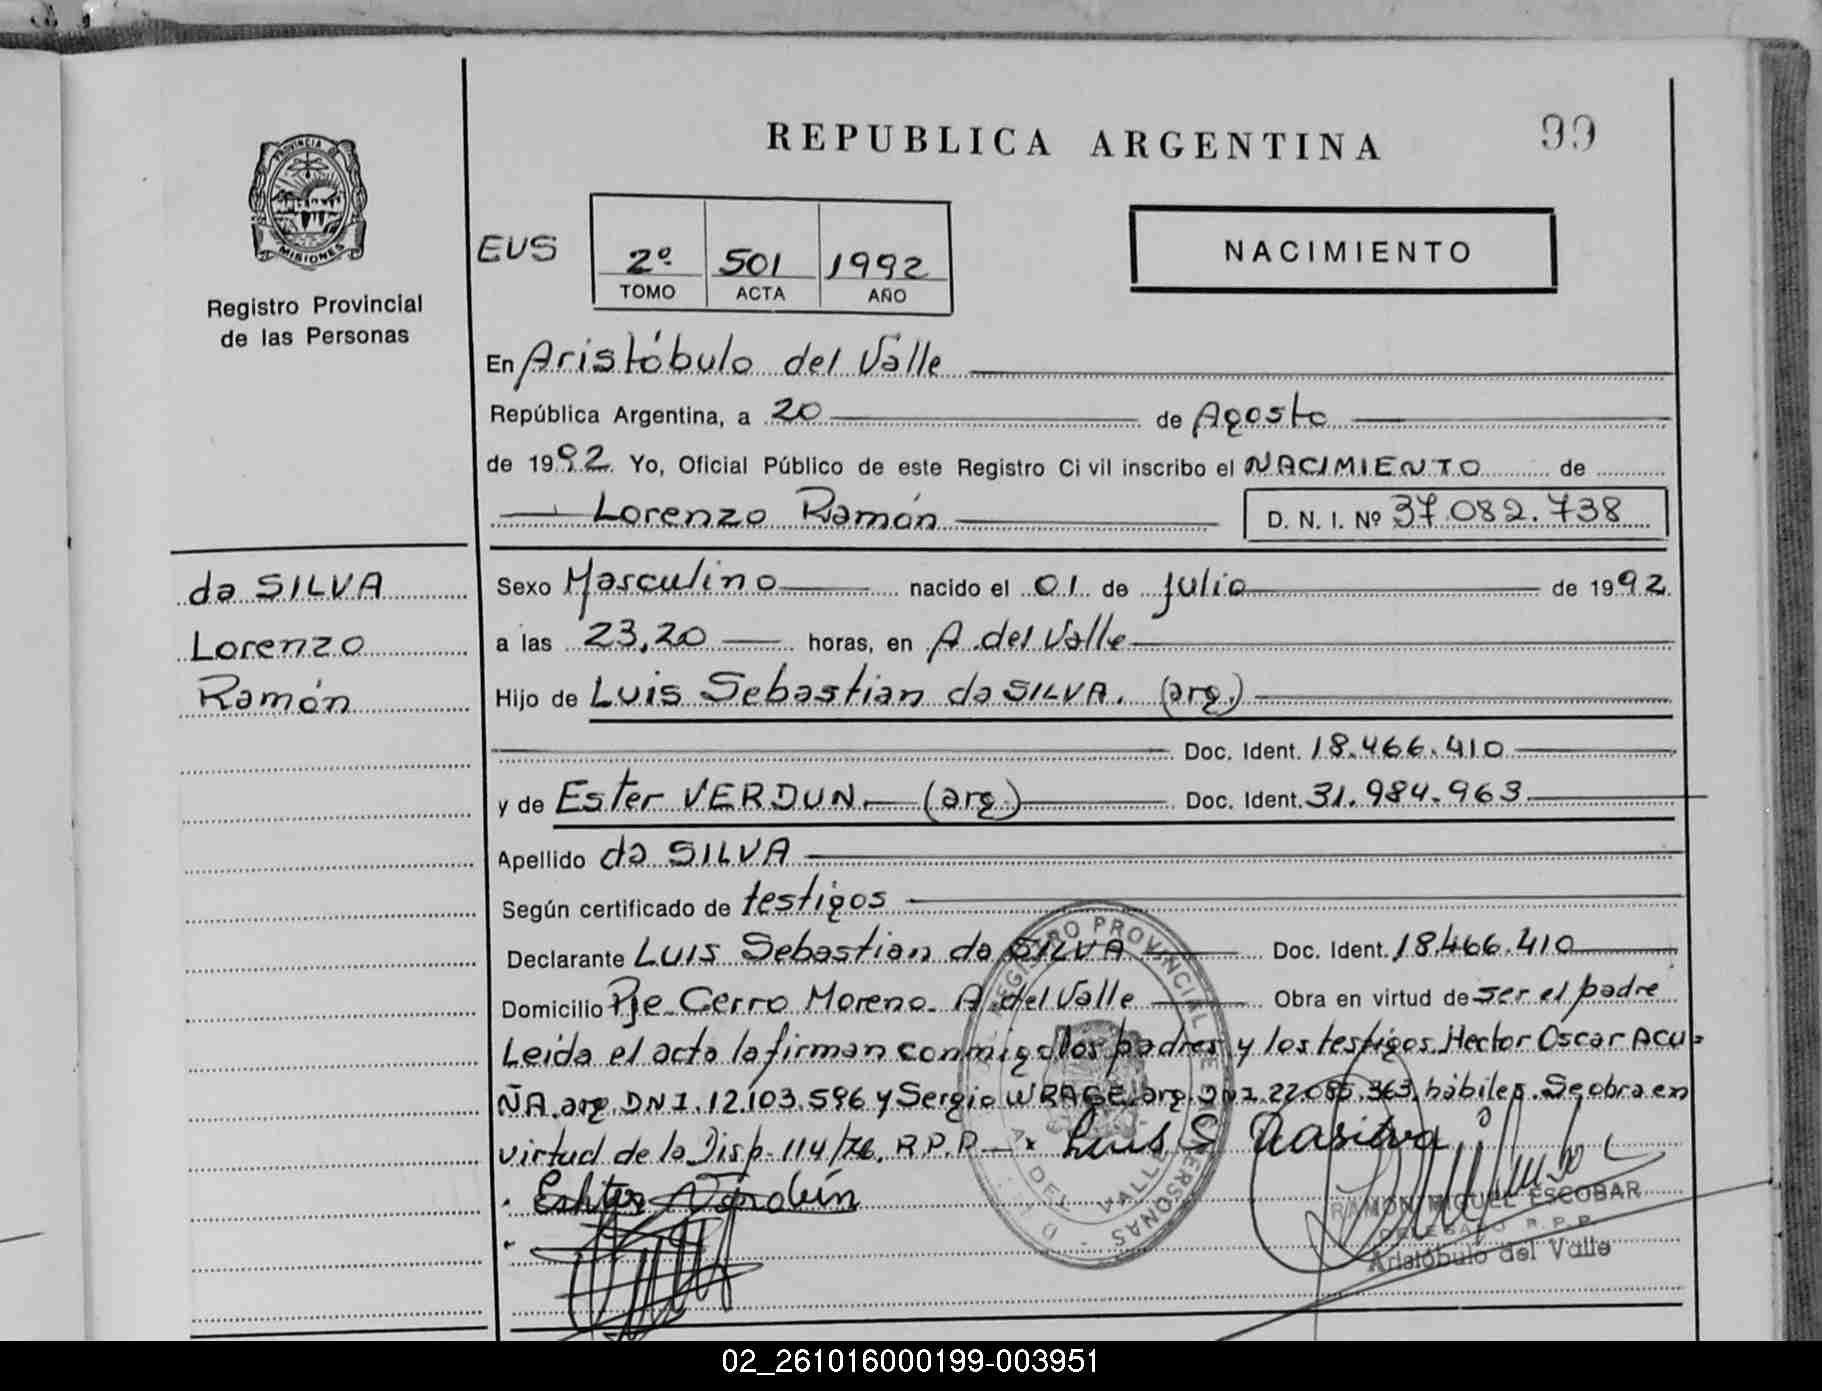 REPUBLICA ARGENTINA
99
PROVINCIA DE
MISIONES
Registro Provincial
de las Personas
EUS
2º 501 1992
TOMO ACTA AÑO
NACIMIENTO
En Aristóbulo del Valle
República Argentina, a 20 de Agosto
de 1992. Yo, Oficial Público de este Registro Civil inscribo el NACIMIENTO de
Lorenzo Ramón D. N. I. Nº 37.082.738
da SILVA
Lorenzo
Ramón
Sexo Masculino nacido el 01 de Julio de 1992
a las 23,20 horas, en A. del Valle
Hijo de Luis Sebastian da SILVA. (arg.)
Doc. Ident. 18.466.410
y de Ester VERDUN (arg.) Doc. Ident. 31.984.963
Apellido da SILVA
Según certificado de testigos
Declarante Luis Sebastian da SILVA Doc. Ident. 18.466.410
Domicilio Pje. Cerro Moreno. A. del Valle Obra en virtud de ser el padre
Leida el acta la firman conmigo los padres y los testigos Hector Oscar ACU-
ÑA. arg. DNI. 12.103.596 y Sergio WRAGE. arg. DNI. 22.085.363, hábiles. Se obra en
virtud de la Disp. 114/76. R.P.P. x Luis S Dasilva
REGISTRO PROVINCIAL DE LAS PERSONAS
A. DEL VALLE
RAMON MIGUEL ESCOBAR
DELEGADO R.P.P.
Aristóbulo del Valle
02_261016000199-003951